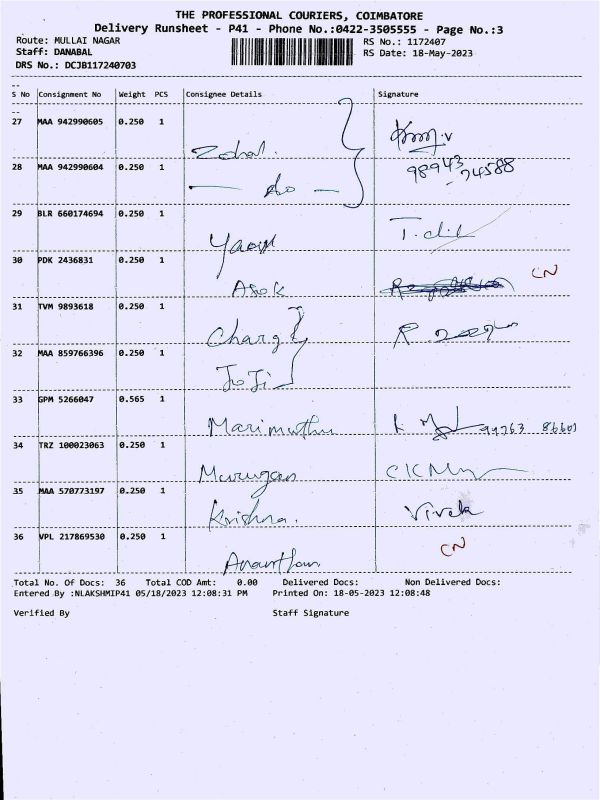 THE PROFESSIONAL COURIERS, COIMBATORE
Delivery Runsheet - P41 - Phone No.:0422-3505555 - Page No.:3
Route: MULLAI NAGAR RS No.: 1172407
Staff: DANABAL RS Date: 18-May-2023
DRS No.: DCJB117240703
--
S No Consignment No Weight PCS Consignee Details Signature
27 MAA 942990605 0.250 1
28 MAA 942990604 0.250 1 98943 74588
29 BLR 660174694 0.250 1
30 PDK 2436831 0.250 1 Asok CN
31 TVM 9893618 0.250 1
32 MAA 859766396 0.250 1 JoJi
33 GPM 5266047 0.565 1 Marimuthu 99763 86601
34 TRZ 100023063 0.250 1 Murugan
35 MAA 570773197 0.250 1 Krishna. Vivek
36 VPL 217869530 0.250 1 Ananthan CN
Total No. Of Docs: 36 Total COD Amt: 0.00 Delivered Docs: Non Delivered Docs:
Entered By :NLAKSHMIP41 05/18/2023 12:08:31 PM Printed On: 18-05-2023 12:08:48
Verified By Staff Signature